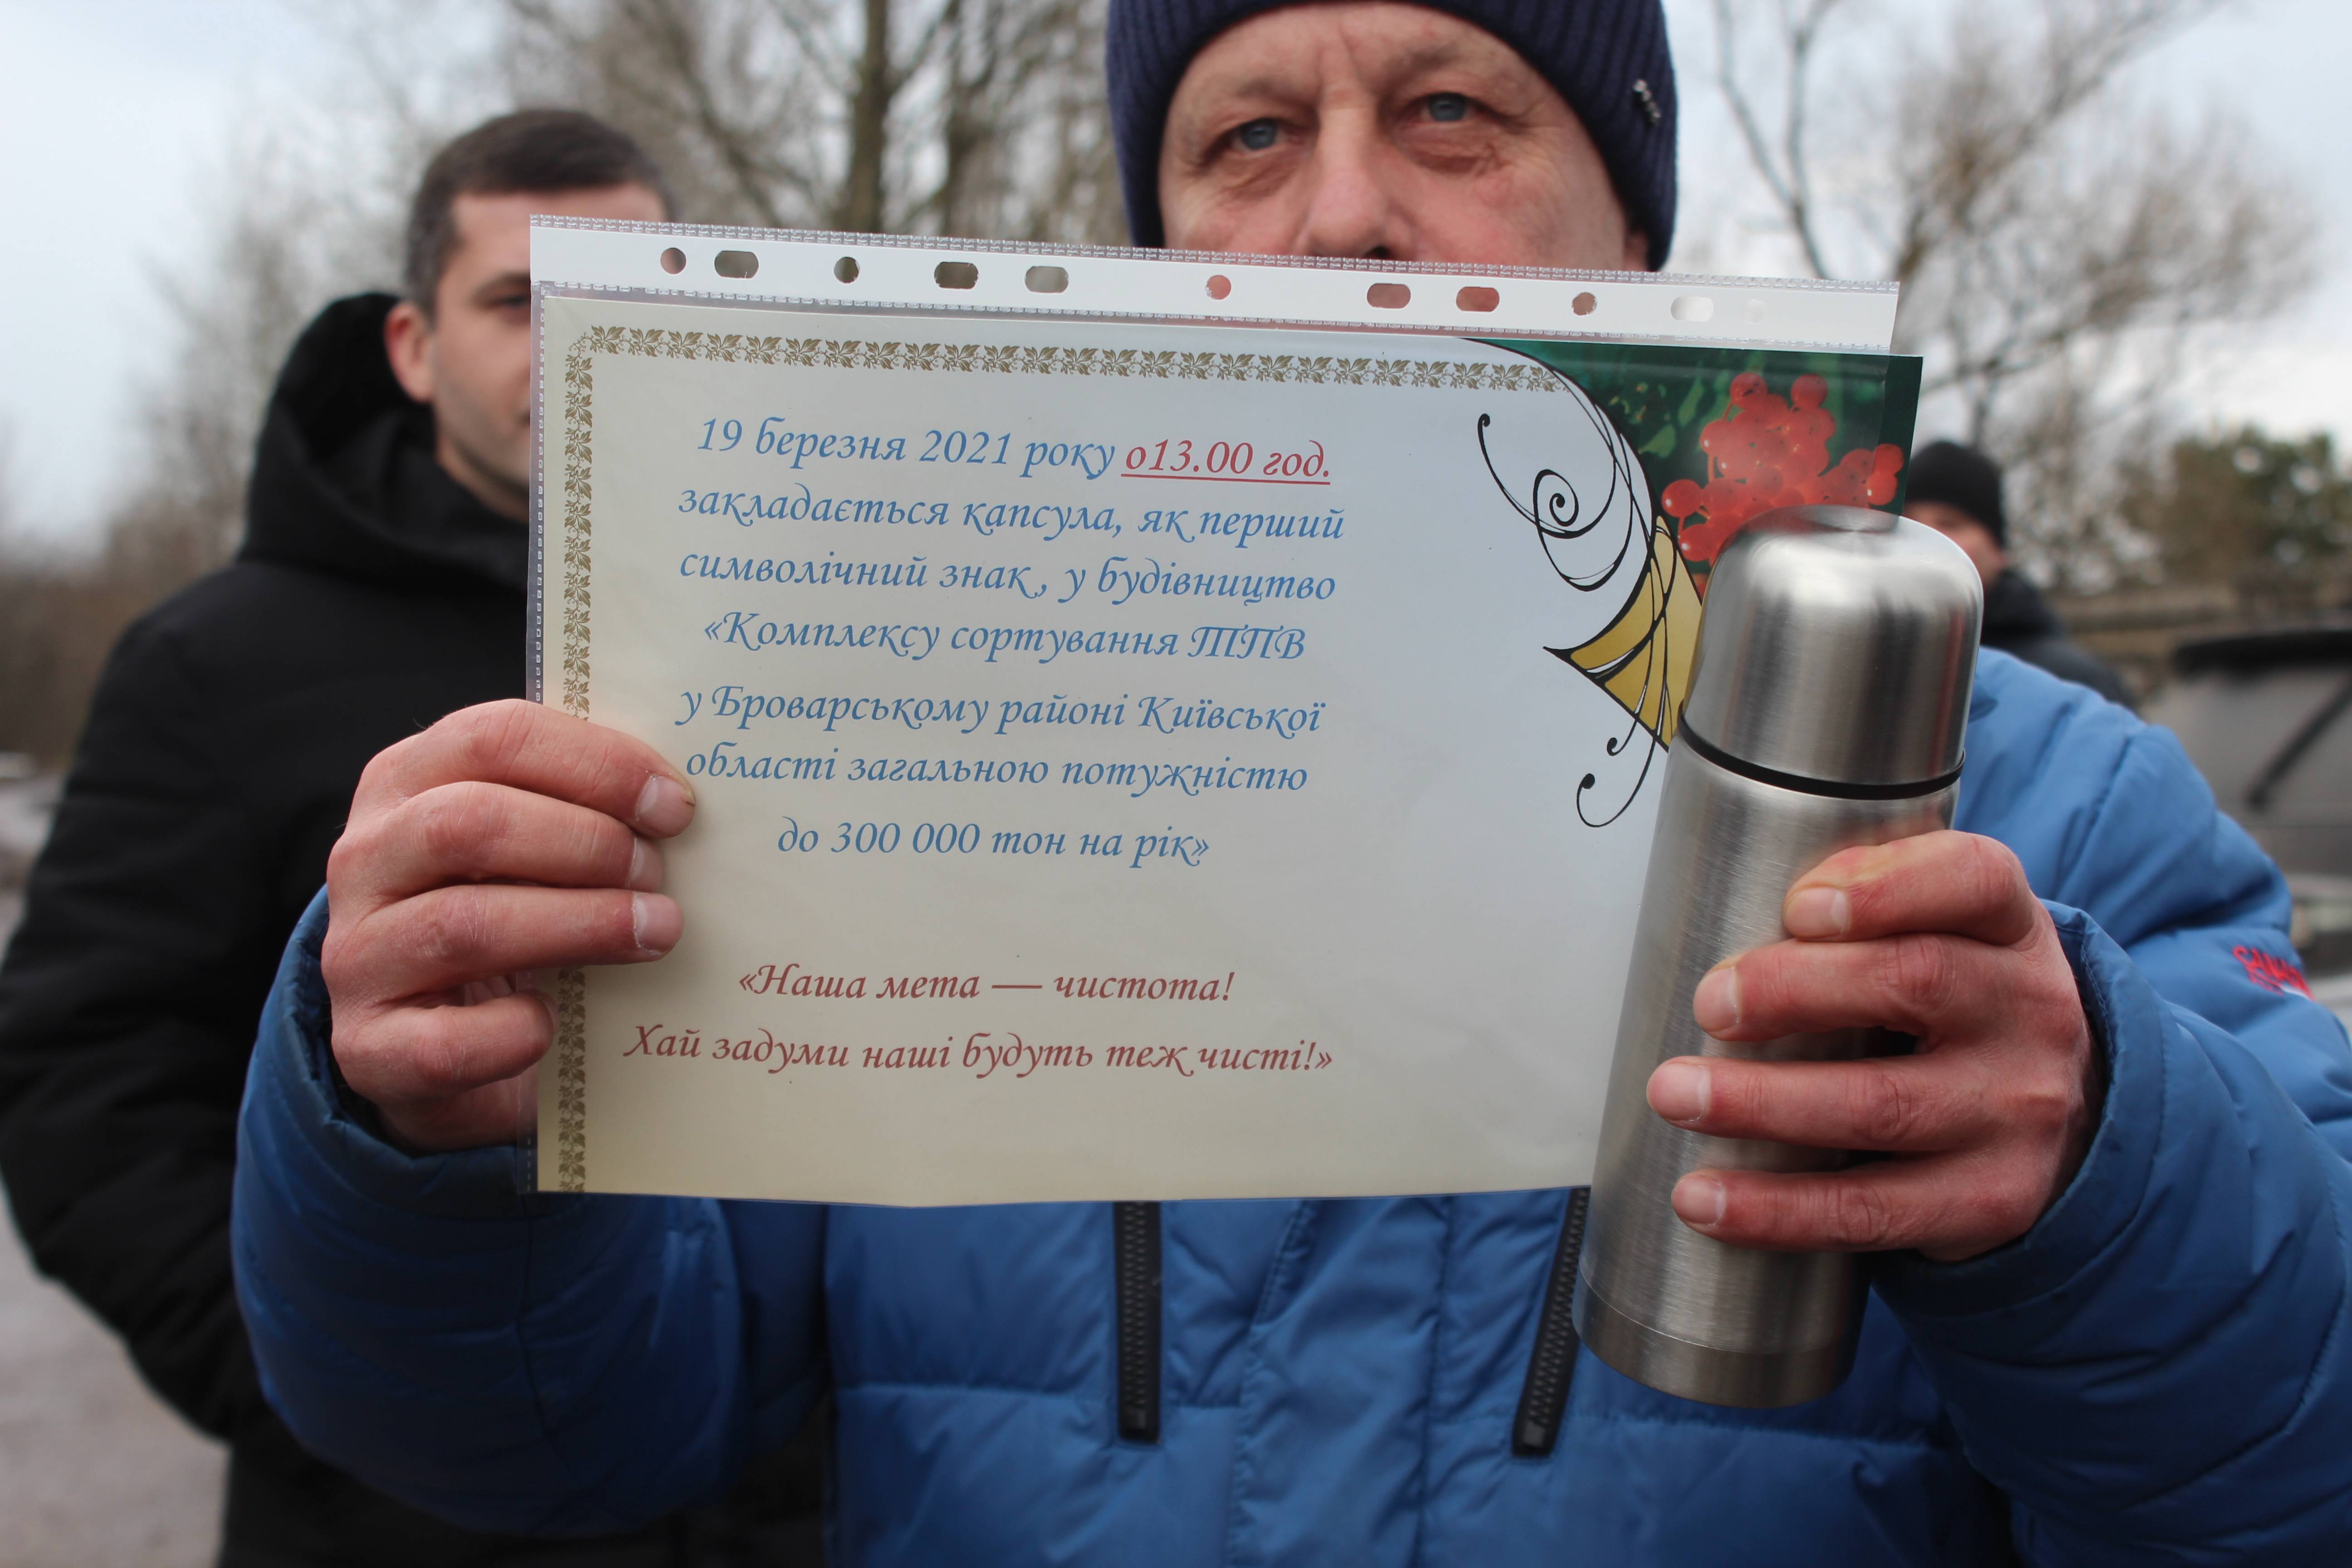 19 березня 2021 року о13.00 год.
закладається капсула, як перший
символічний знак, у будівництво
«Комплексу сортування ТПВ
у Броварському районі Київської
області загальною потужністю
до 300 000 тон на рік»
«Наша мета — чистота!
Хай задуми наші будуть теж чисті!»